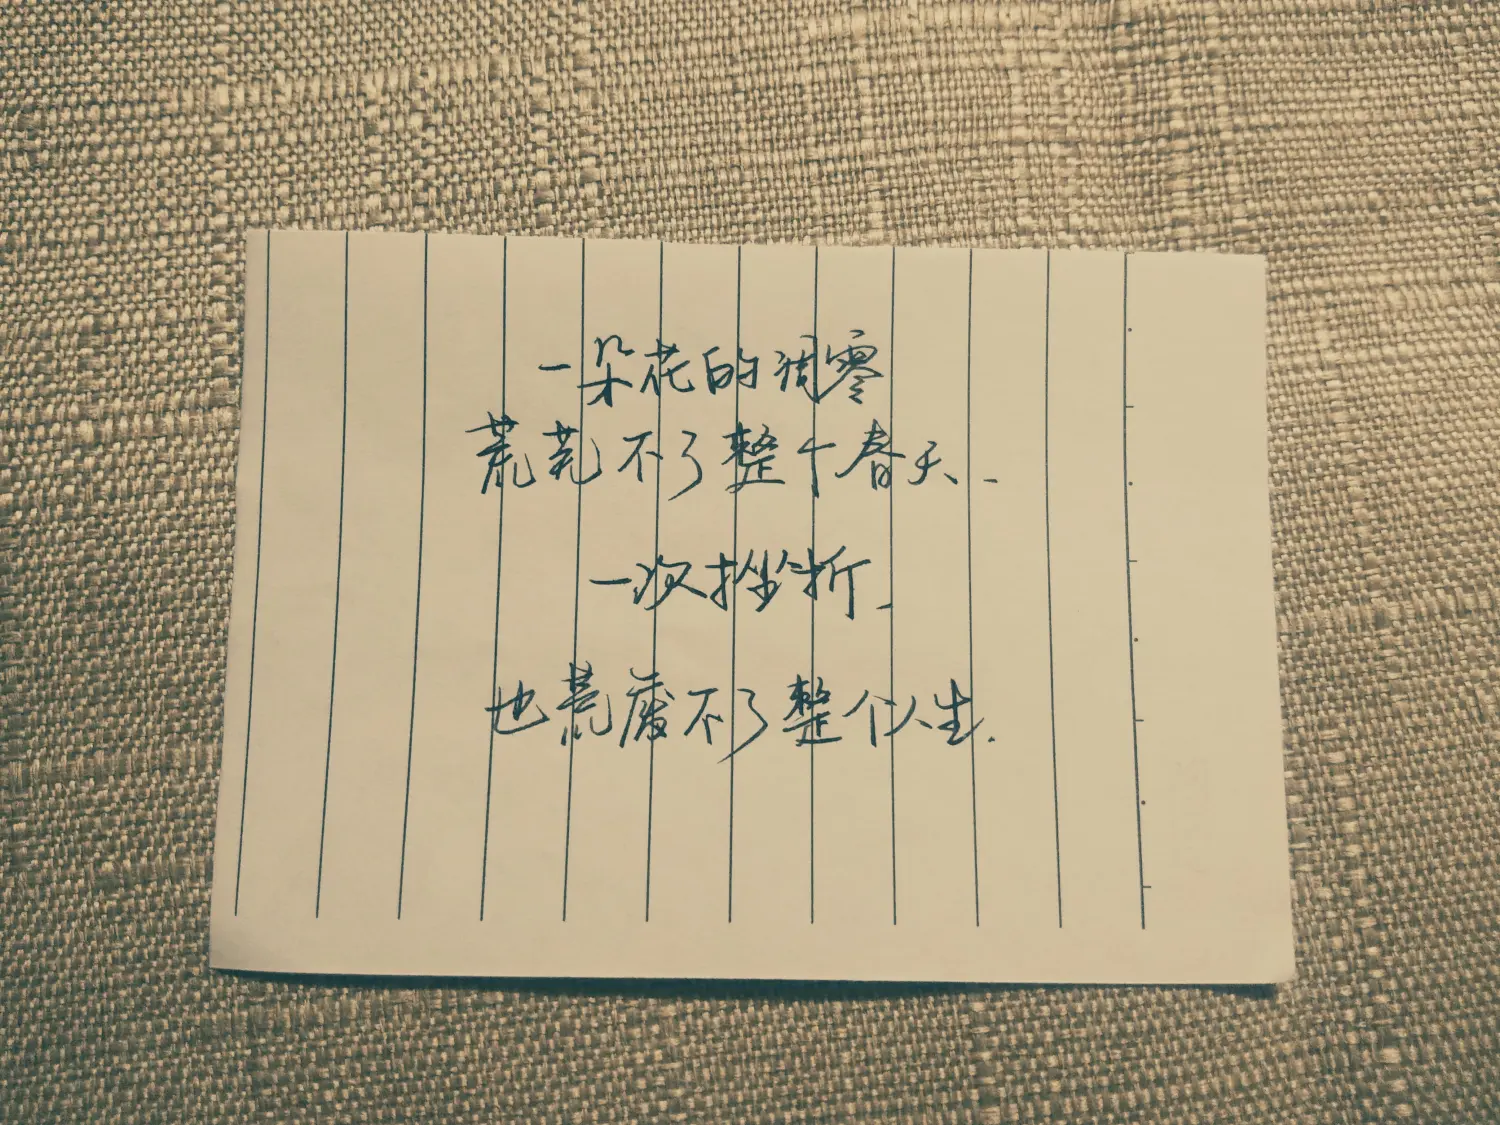 一朵花的凋零
荒芜不了整个春天.
一次挫折.
也荒废不了整个人生.